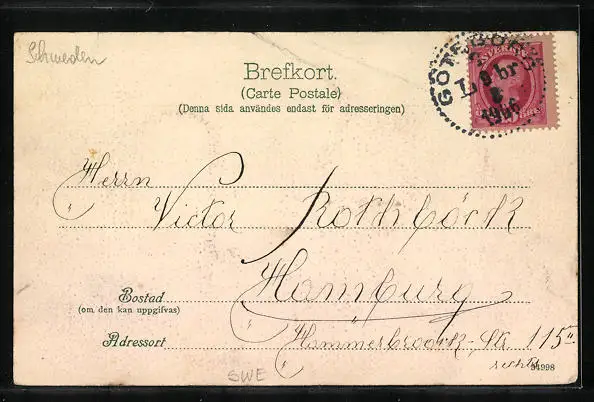 Schweden
Brefkort.
(Carte Postale)
(Denna sida användes endast för adresseringen)
SVERIGE
GÖTEBORG
L br
1906
Herrn
Victor Rothbörk
Hamburg
Bostad
(om den kan uppgifvas)
Adressort
Hammerbroork-Str 115 II
rechts
34998
SWE